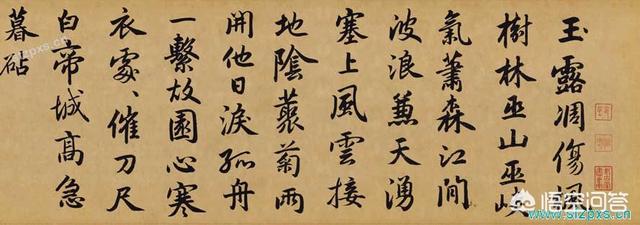 玉露凋傷風
樹林巫山巫峽
氣蕭森江間
波浪兼天湧
塞上風雲接
地陰藂菊兩
開他日淚孤舟
一繫故園心寒
衣處〻催刀尺
白帝城高急
暮砧
悟空问答